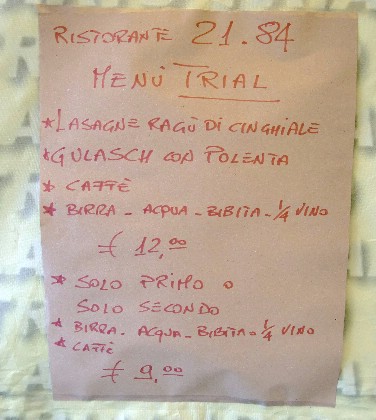 RISTORANTE 21.84
MENÙ TRIAL
*LASAGNE RAGÙ DI CINGHIALE
*GULASCH CON POLENTA
* CAFFÈ
* BIRRA - ACQUA - BIBITA - 1/4 VINO
€ 12,00
* SOLO PRIMO O
SOLO SECONDO
* BIRRA - ACQUA - BIBITA - 1/4 VINO
* CAFFÈ
€ 9,00